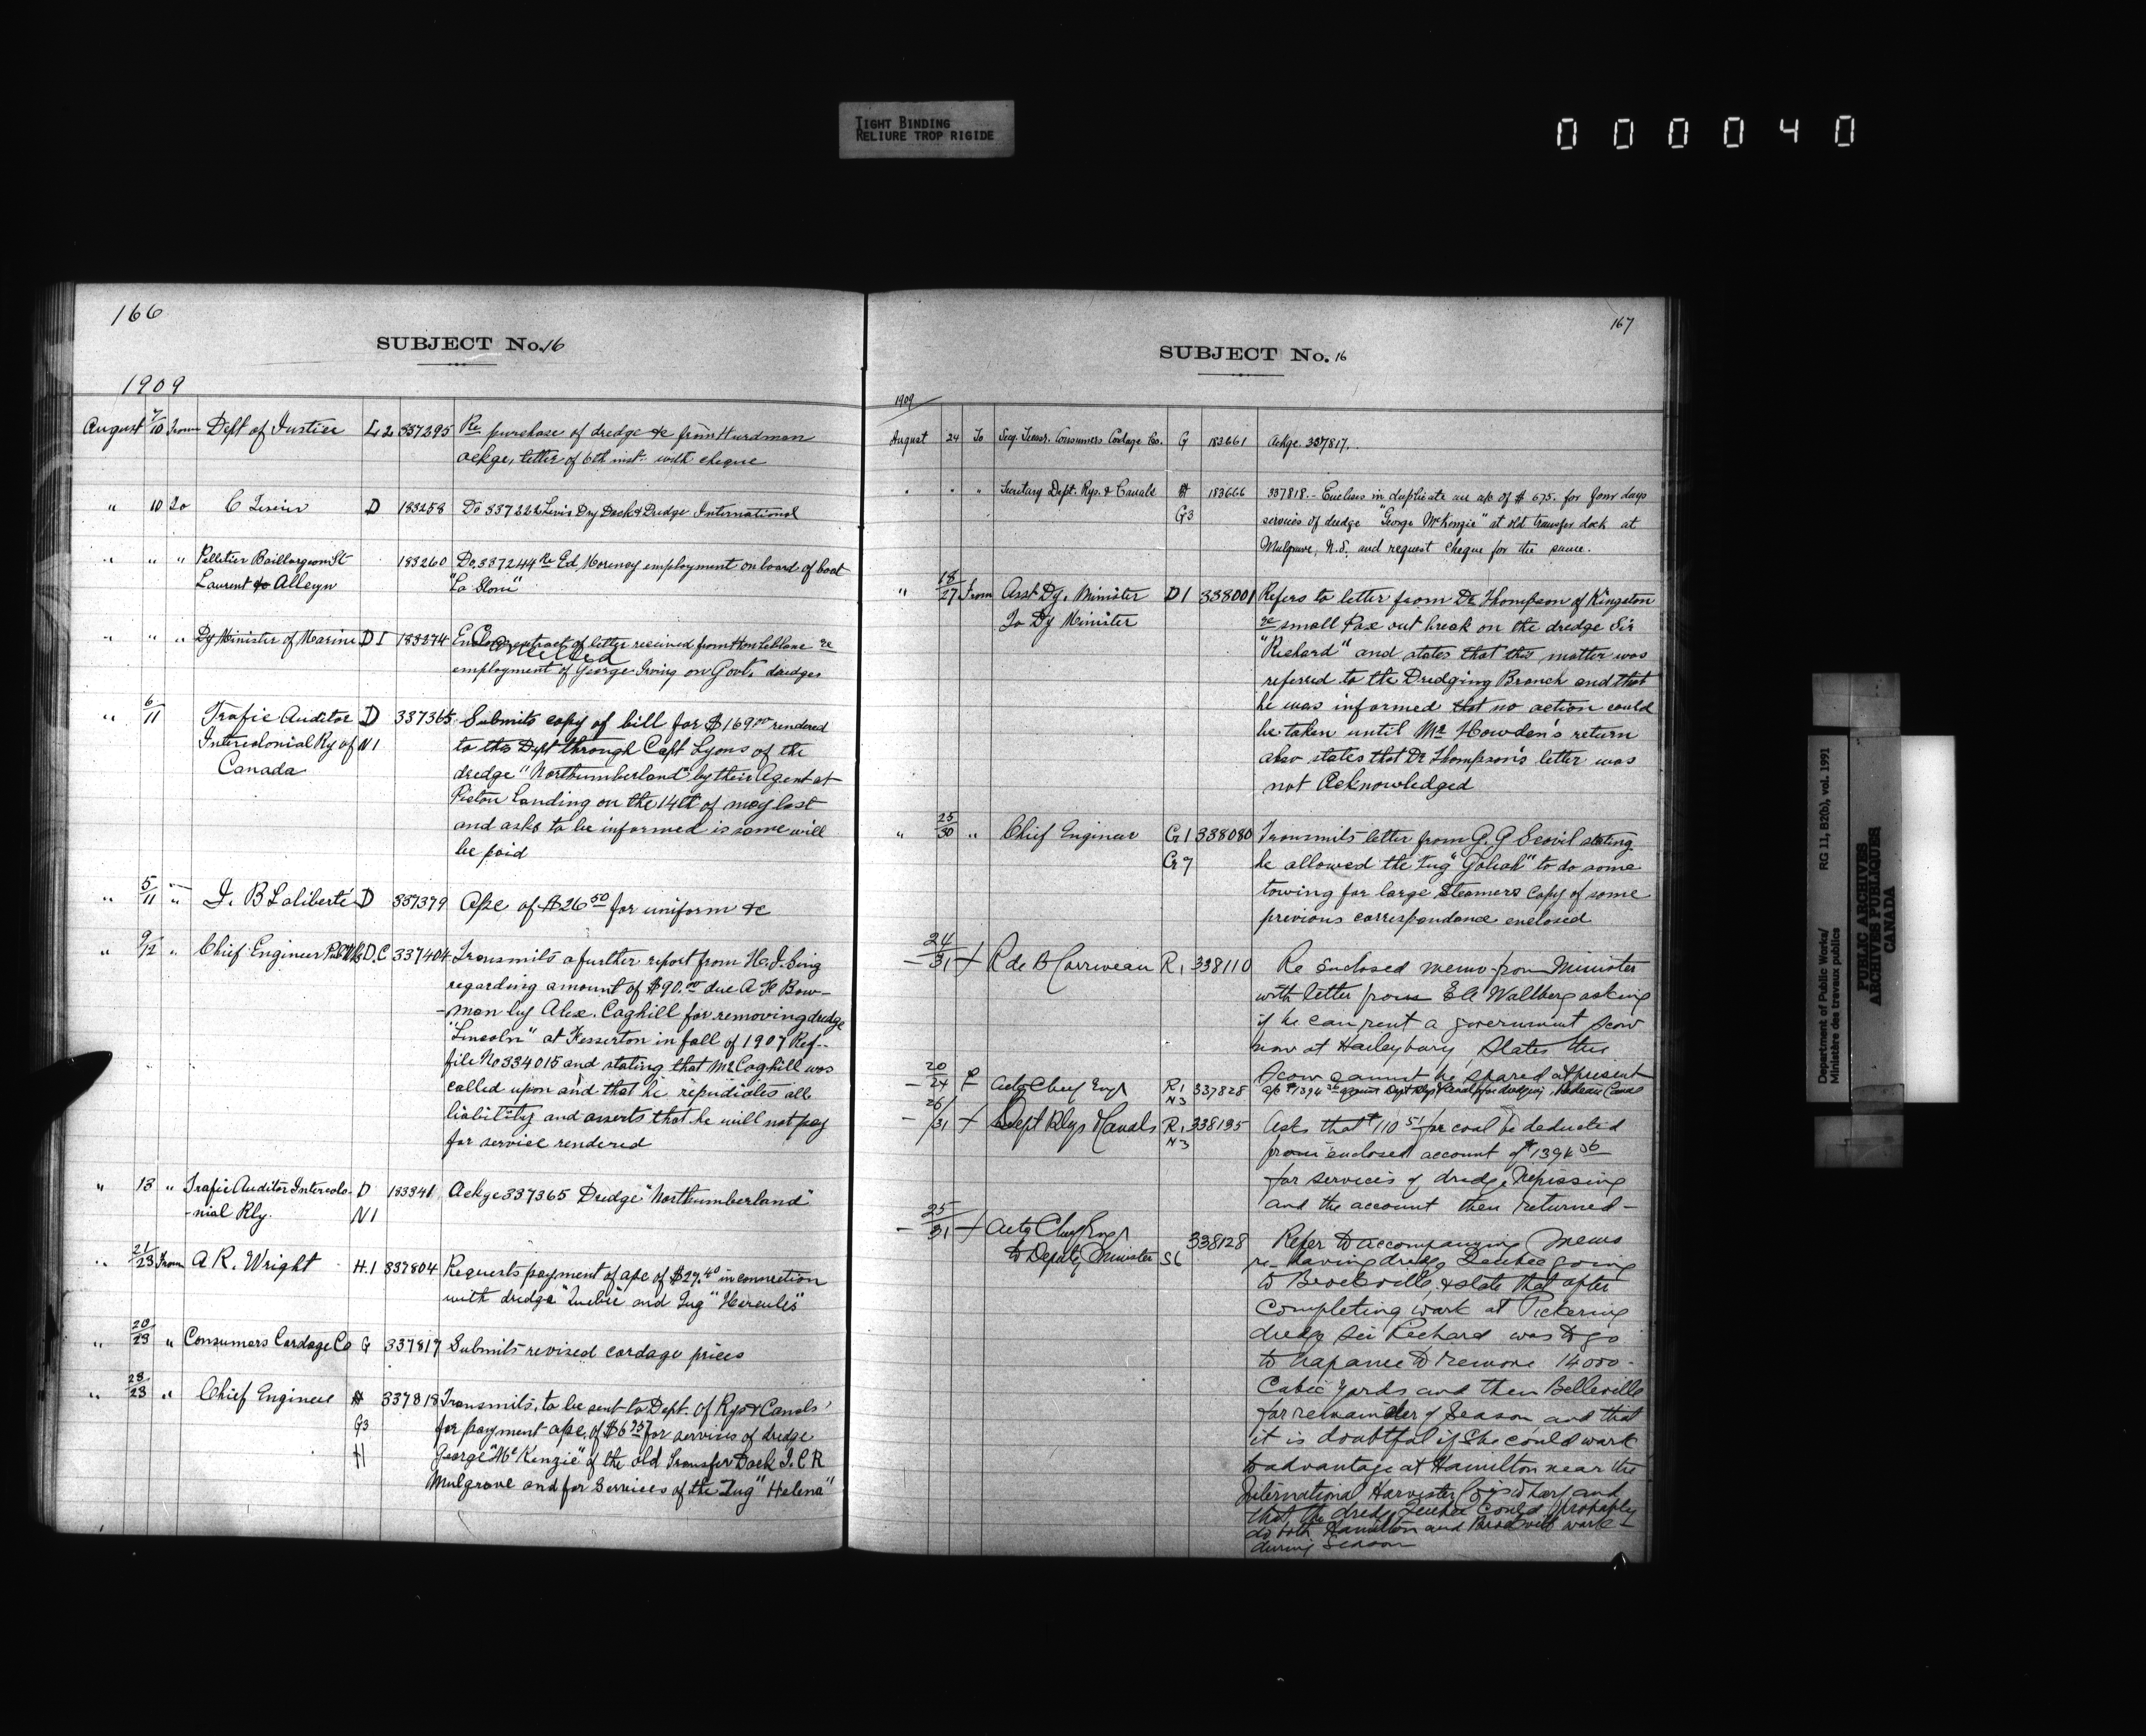 TIGHT BINDING
RELIURE TROP RIGIDE
000040
166
SUBJECT No. 16
1909
August 7/10 From Dept of Justice L 2 337295 Re purchase of dredge &c from Hurdman
ackge, letter of 6th inst. with cheque
" 10 To C D 183258 Do 337222 Levis Dry Dock & Dredge International
" " " Pelletier Baillargeon St 183260 Do 337244 Re Ed. employment on board of boat
Laurent & Alleyn "La
" " " Dy Minister of Marine D I 183274 Encloses extract of letter received from Hon Leblanc re
Cancelled
employment of George Irving on Govt. dredges
" 6/11 Trafic Auditor D 337365 Submits copy of bill for $169.00 rendered
Intercolonial Ry of N1 to the Dept through Capt Lyons of the
Canada dredge "Northumberland" by their Agent at
Pictou Landing on the 14th of may last
and asks to be informed is same will
be paid
" 5/11 " J. B Laliberté D 337379 a/c of $26.50 for uniform &c
" 9/12 " Chief Engineer D.C 337404 Transmits a further report from H. J. Sing
regarding amount of $90.00 due A H Bow-
-man by Alex. Caghill for removing dredge
"Lincoln" at Fesserton in fall of 1907 Ref-
file No 334015 and stating that Mr Caghill was
called upon and that he repudiates all
liability and asserts that he will not pay
for service rendered
" 13 " Trafic Auditor Intercolo- D 183341 Ackge 337365 Dredge "Northumberland"
-nial Rly. N1
" 21/23 From A R. Wright H.1 337804 Requests payment of a/c of $27.40 in connection
with dredge "Quebec" and Tug "Hercules"
" 20/23 " Consumers Cordage Co G 337817 Submits revised cordage prices
" 23/23 " Chief Engineer 337818 Transmits, to be sent to Dept. of Rys & Canals
G3 for payment a/c. of $675 for services of dredge
H George "McKenzie" of the old Transfer Dock I.C R
Mulgrave and for Services of the Tug "Helena"
167
SUBJECT No. 16
1909
August 24 To Secy. Treasr. Consumers Cordage Co. G 183661 Ackge. 337817.
" " " Secretary Dept. Rys. & Canals 183666 337818.- Encloses in duplicate an a/c of $675. for four days
G3 services of dredge "George McKenzie" at old transfer dock at
Mulgrave, N.S. and request cheque for the same.
" 18/27 From Asst Dy. Minister D1 338001 Refers to letter from Dr Thompson of Kingston
To Dy Minister re small Pox out break on the dredge Sir
"Richard" and states that this matter was
referred to the Dredging Branch and that
he was informed that no action could
be taken until Mr Howden's return
also states that Dr Thompson's letter was
not Acknowledged
" 25/30 " Chief Engineer G1 338080 Transmits letter from G. G Scovil stating
G7 he allowed the Tug "Goliah" to do some
towing for large Steamers Copy of some
previous correspondence enclosed
24/31 R de B Corriveau R1 338110 Re Enclosed memo from Minister
with letter from E A Wallberg asking
if he can rent a government scow
now at Haileybury, States this
Scow cannot be spared at present
20/24 Actg Chief Engr R1 N3 337828 a/c $1394.36 against Dept Rlys & Canals for dredging Rideau Canal
26/31 Dept Rlys & Canals R1 338135 Asks that $110.51 for coal be deducted
N3 from enclosed account of $1394.36
for services of dredge Nipissing
and the account then returned -
25/31 Actg Chief Engr 338128 Refer to accompanying memo
to Deputy Minister S6 re having dredge Quebec going
to Brockville, & state that after
completing work at Pickering
dredge Sir Richard was to go
to Napanee to remove 14000 -
Cubic yards and then Belleville
for remainder of Season and that
it is doubtful if She could work
to advantage at Hamilton near the
International Harvester Co's Wharf and
that the dredge Quebec could probably
do both Hamilton and Brockville work
during Season
Department of Public Works/ RG 11, B2(b), vol. 1991
Ministère des travaux publics
PUBLIC ARCHIVES
ARCHIVES PUBLIQUES
CANADA